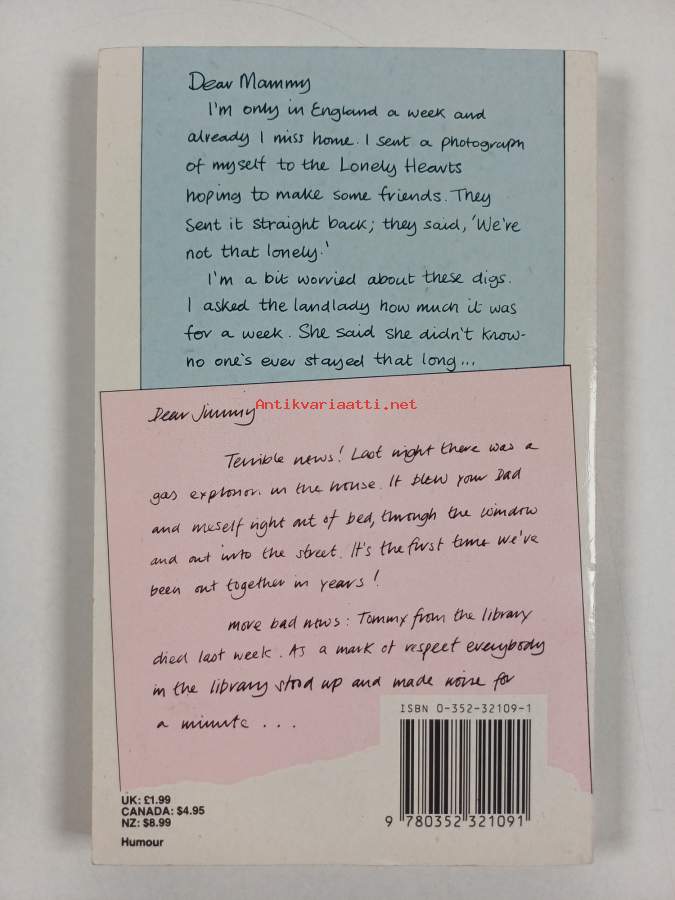 Dear Mammy
I'm only in England a week and
already I miss home. I sent a photograph
of myself to the Lonely Hearts
hoping to make some friends. They
sent it straight back; they said, 'We're
not that lonely.'
I'm a bit worried about these digs.
I asked the landlady how much it was
for a week. She said she didn't know-
no one's ever stayed that long...
Antikvariaatti.net
Dear Jimmy
Terrible news! Last night there was a
gas explosion in the house. It blew your Dad
and meself right out of bed, through the window
and out into the street. It's the first time we've
been out together in years!
More bad news: Tommy from the library
died last week. As a mark of respect everybody
in the library stood up and made noise for
a minute...
ISBN 0-352-32109-1
9 780352 321091
UK: £1.99
CANADA: $4.95
NZ: $8.99
Humour